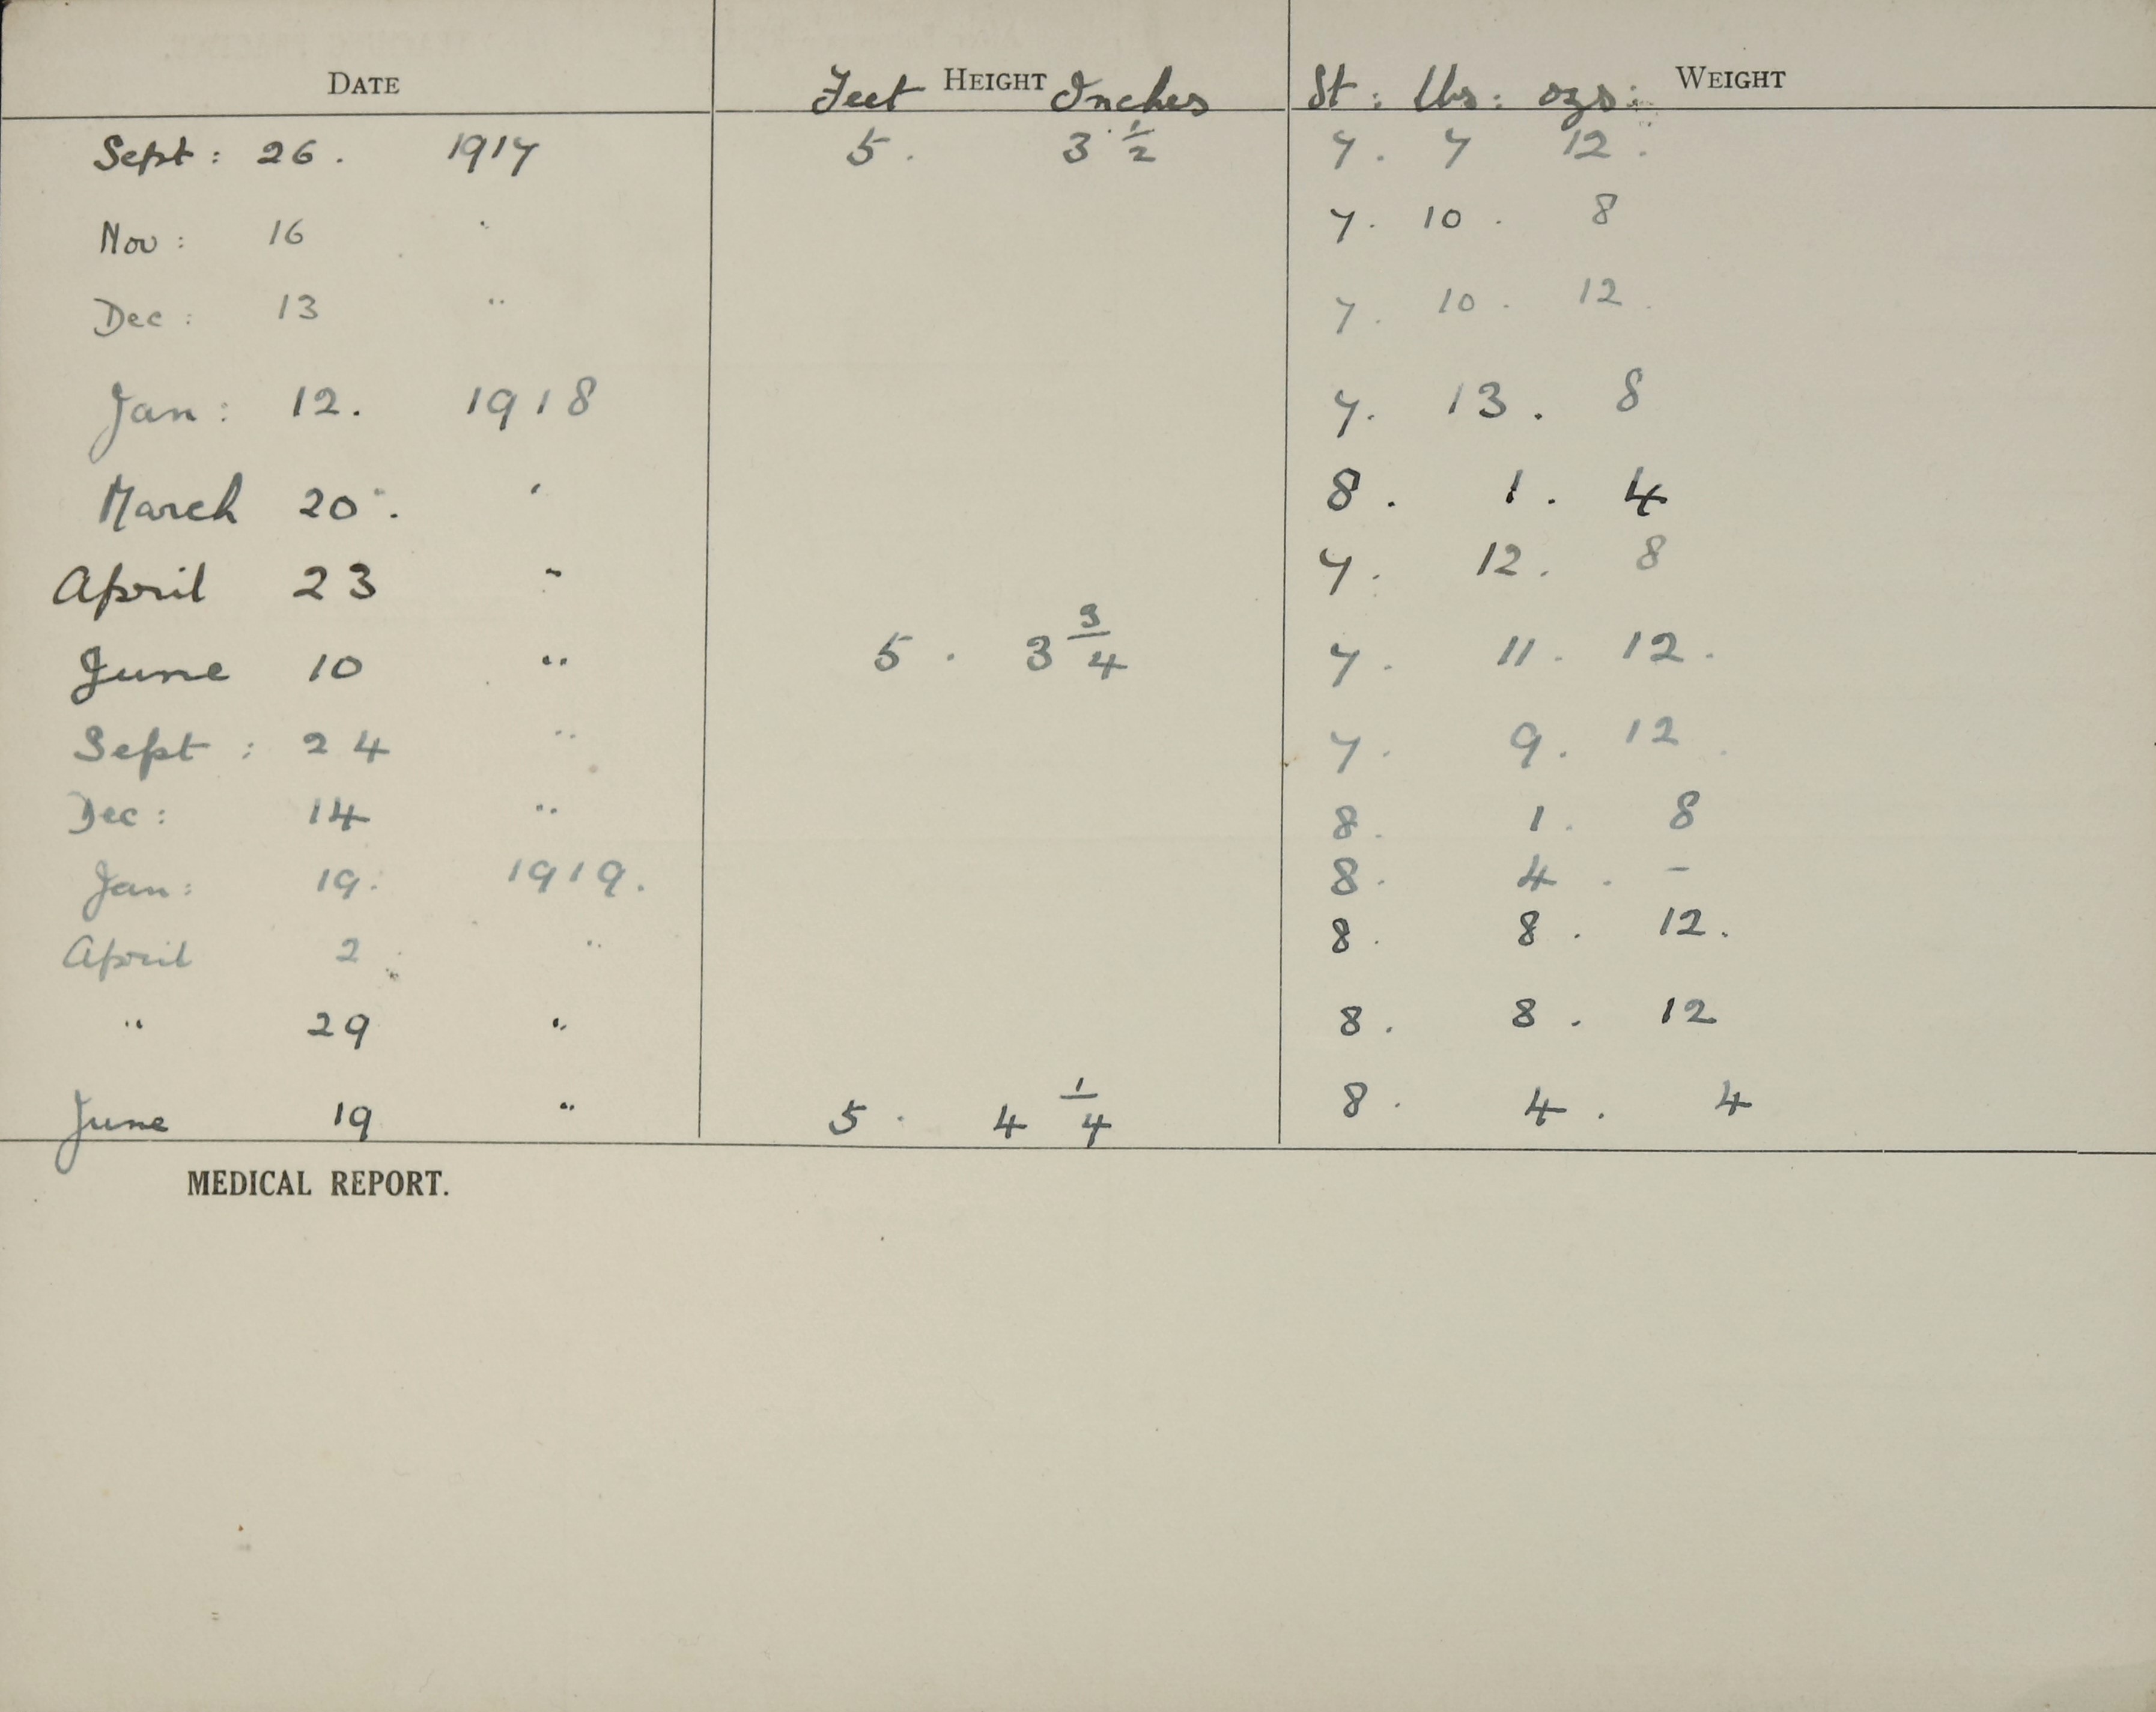 DATE Feet HEIGHT Inches St: lbs: ozs: WEIGHT
Sept: 26. 1917 5. 3 1/2 7. 7 12.
Nov: 16 " 7. 10. 8
Dec: 13 " 7. 10. 12.
Jan: 12. 1918 7. 13. 8
March 20. " 8. 1. 4
April 23 " 7. 12. 8
June 10 " 5. 3 3/4 7. 11. 12.
Sept: 24 " 7. 9. 12.
Dec: 14 " 8. 1. 8
Jan: 19. 1919. 8. 4. -
April 2 " 8. 8. 12.
" 29 " 8. 8. 12
June 19 " 5. 4 1/4 8. 4. 4
MEDICAL REPORT.